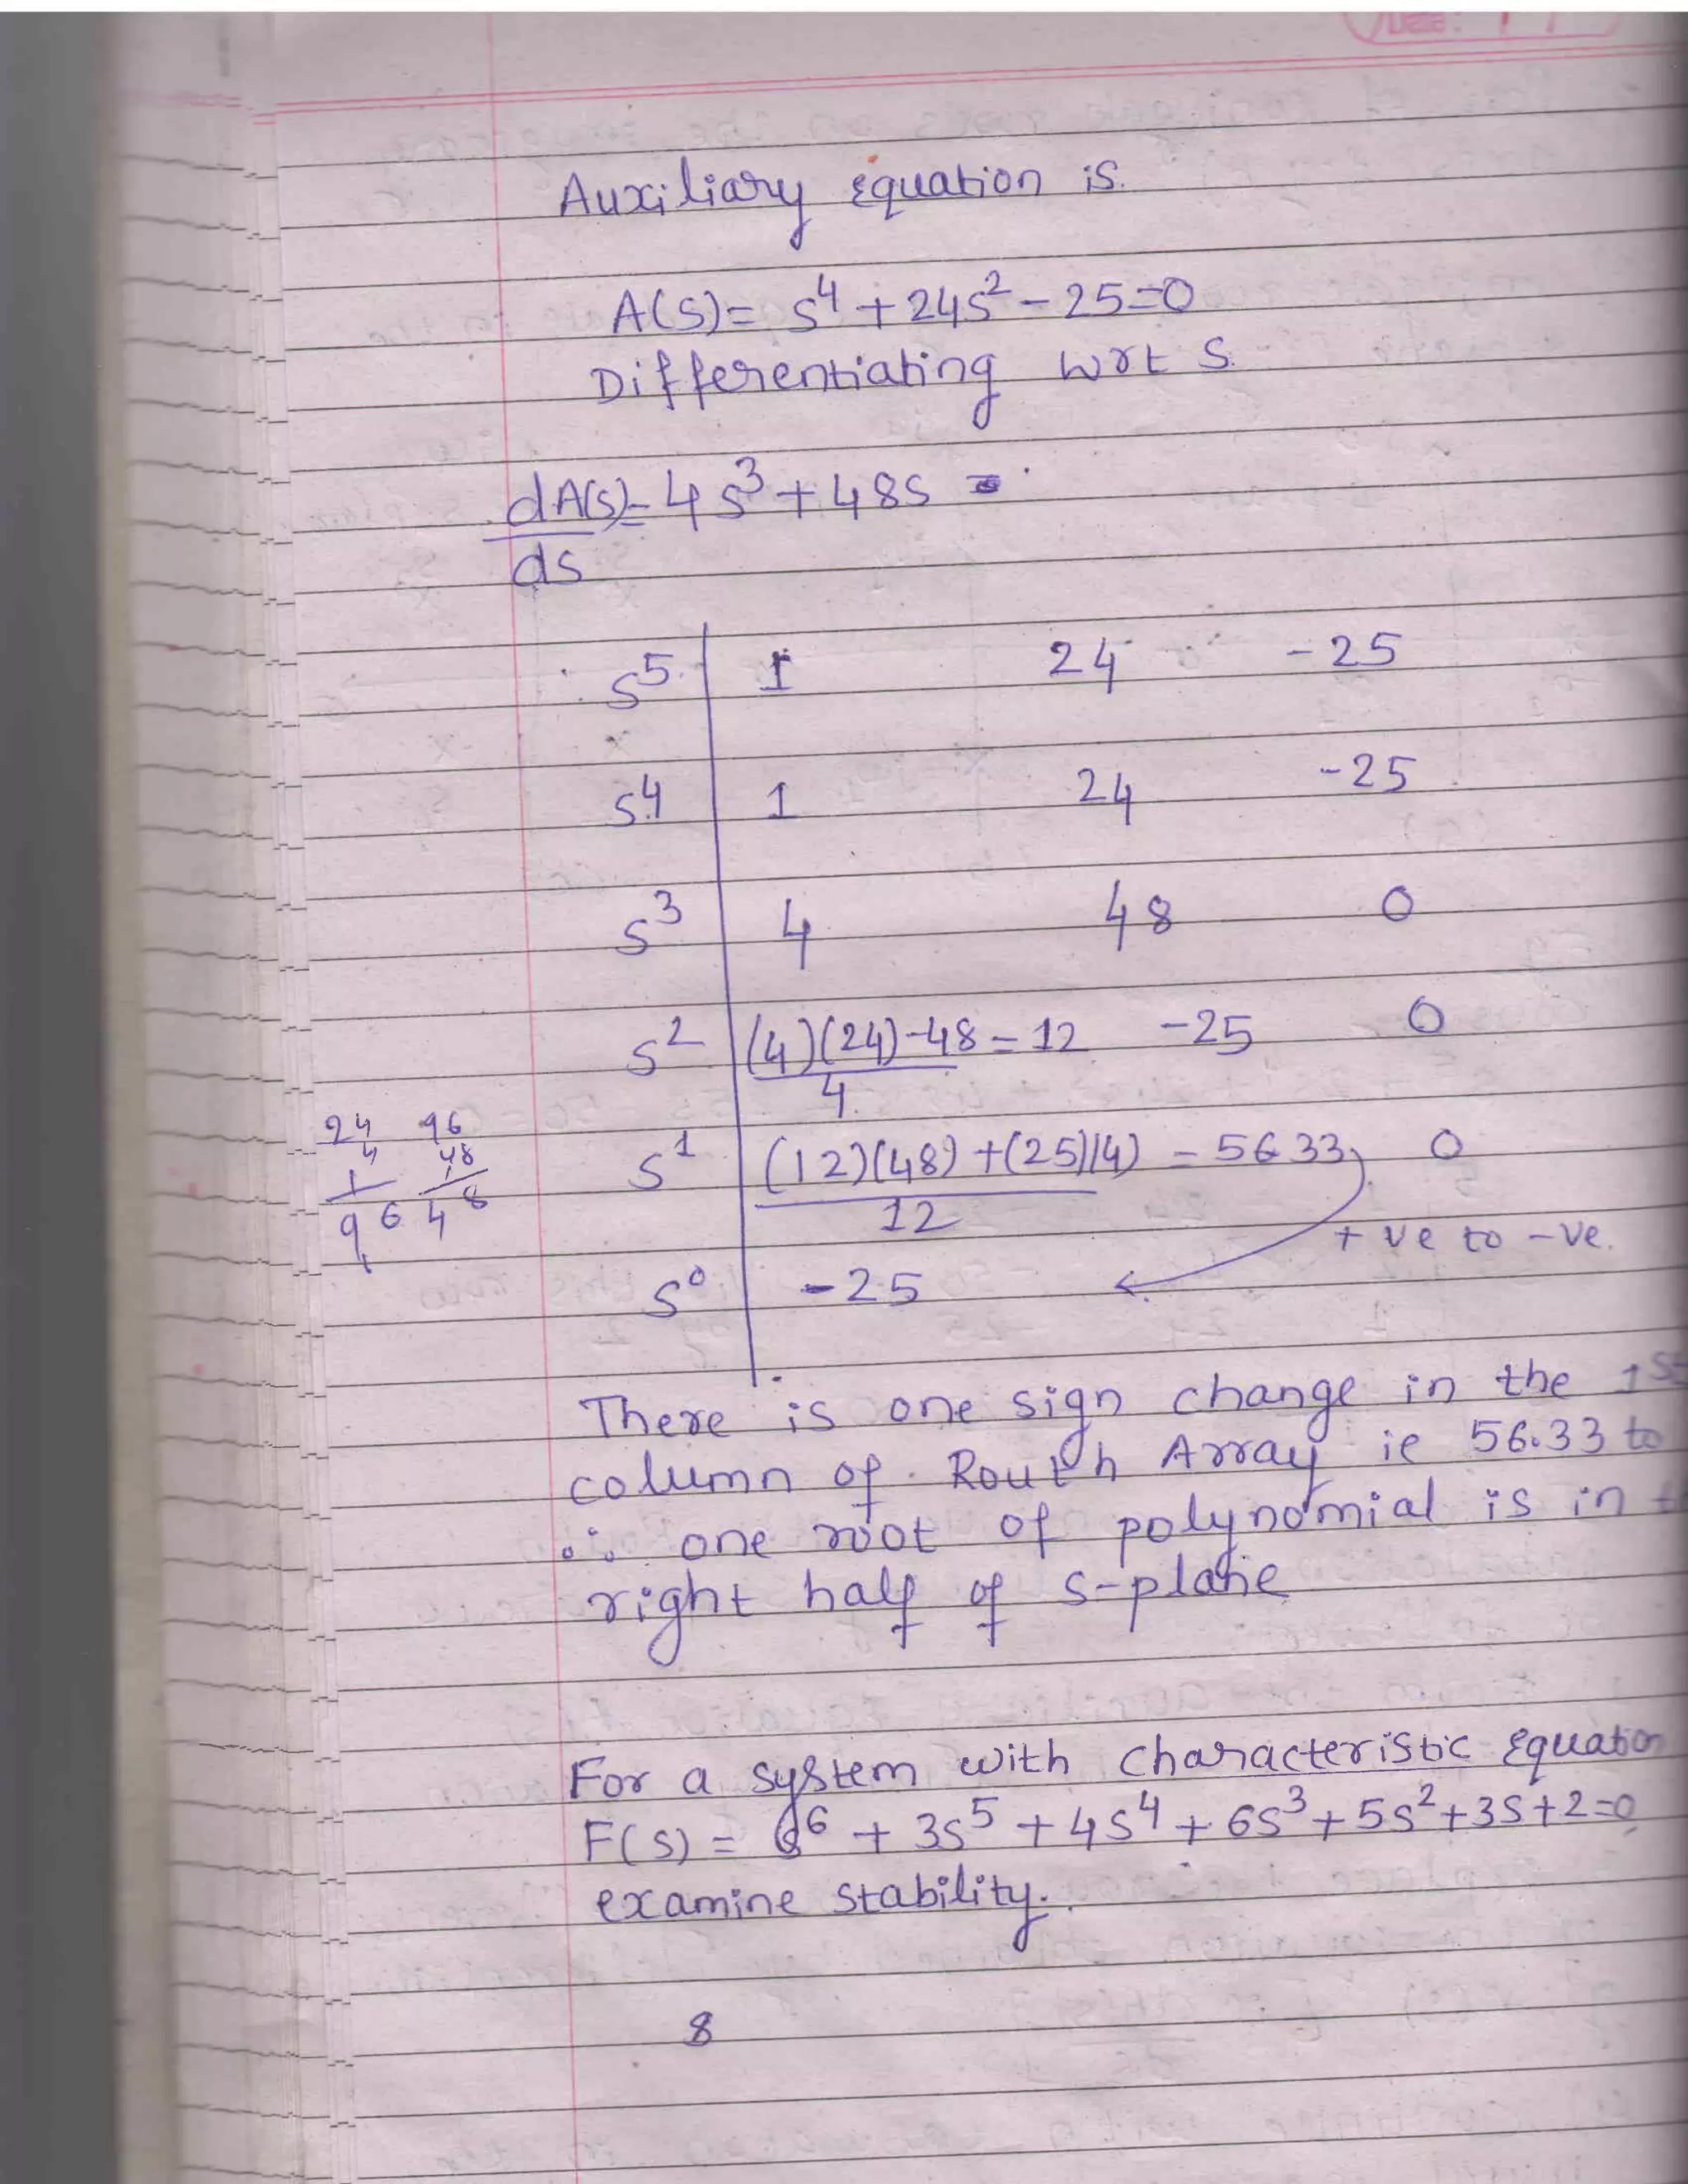 Date:
Auxiliary equation is.
A(s) = s⁴ + 24s² - 25 = 0
Differentiating wrt s.
dA(s) = 4s³ + 48s =
ds
s⁵ 1 24 -25
s⁴ 1 24 -25
s³ 4 48 0
s² (4)(24)-48 = 12 -25 0
4
24 96
4 48
96 48
s¹ (12)(48)+(25)(4) = 56 33 0
12
+ve to -ve.
s⁰ -25
There is one sign change in the 1st
column of Routh Array ie 56.33 to
∴ one root of polynomial is in
right half of s-plane
For a system with characteristic equation
F(s) = s⁶ + 3s⁵ + 4s⁴ + 6s³ + 5s² + 3s + 2 = 0
examine stability.
8